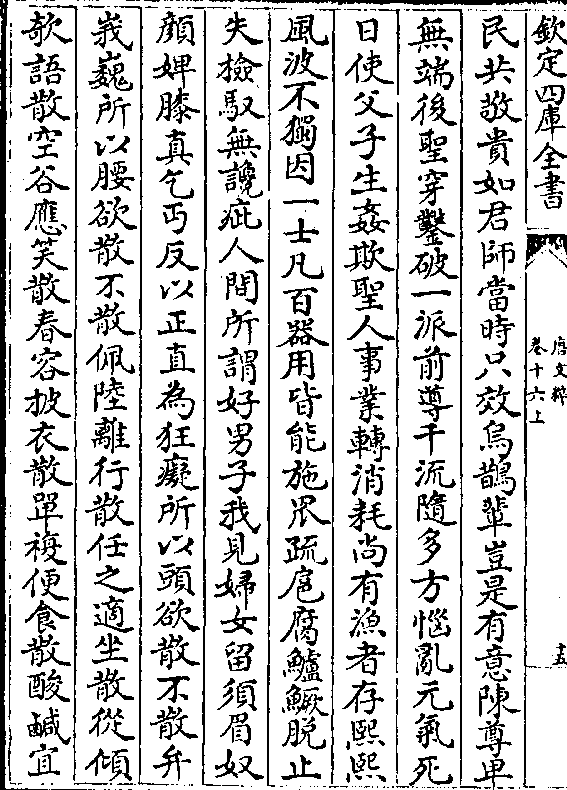 欽定四庫全書
唐文粹
卷十六上
十五
民共敬貴如君師當時只效烏鵲輩豈是有意陳尊卑
無端後聖穿鑿破一派前導千流隨多方惱亂元氣死
日使父子生姦欺聖人事業轉消耗尚有漁者存熙熙
風波不獨因一士凡百器用皆能施眾疏扈腐鱸鱖脫止
失檢馭無讒疵人間所謂好男子我見婦女留須眉奴
顏婢膝真乞丐反以正直為狂癡所以頭欲散不散弁
峩巍所以腰欲散不散佩陸離行散任之適坐散從傾
欹語散空谷應笑散春容披衣散單複便食散酸鹹宜